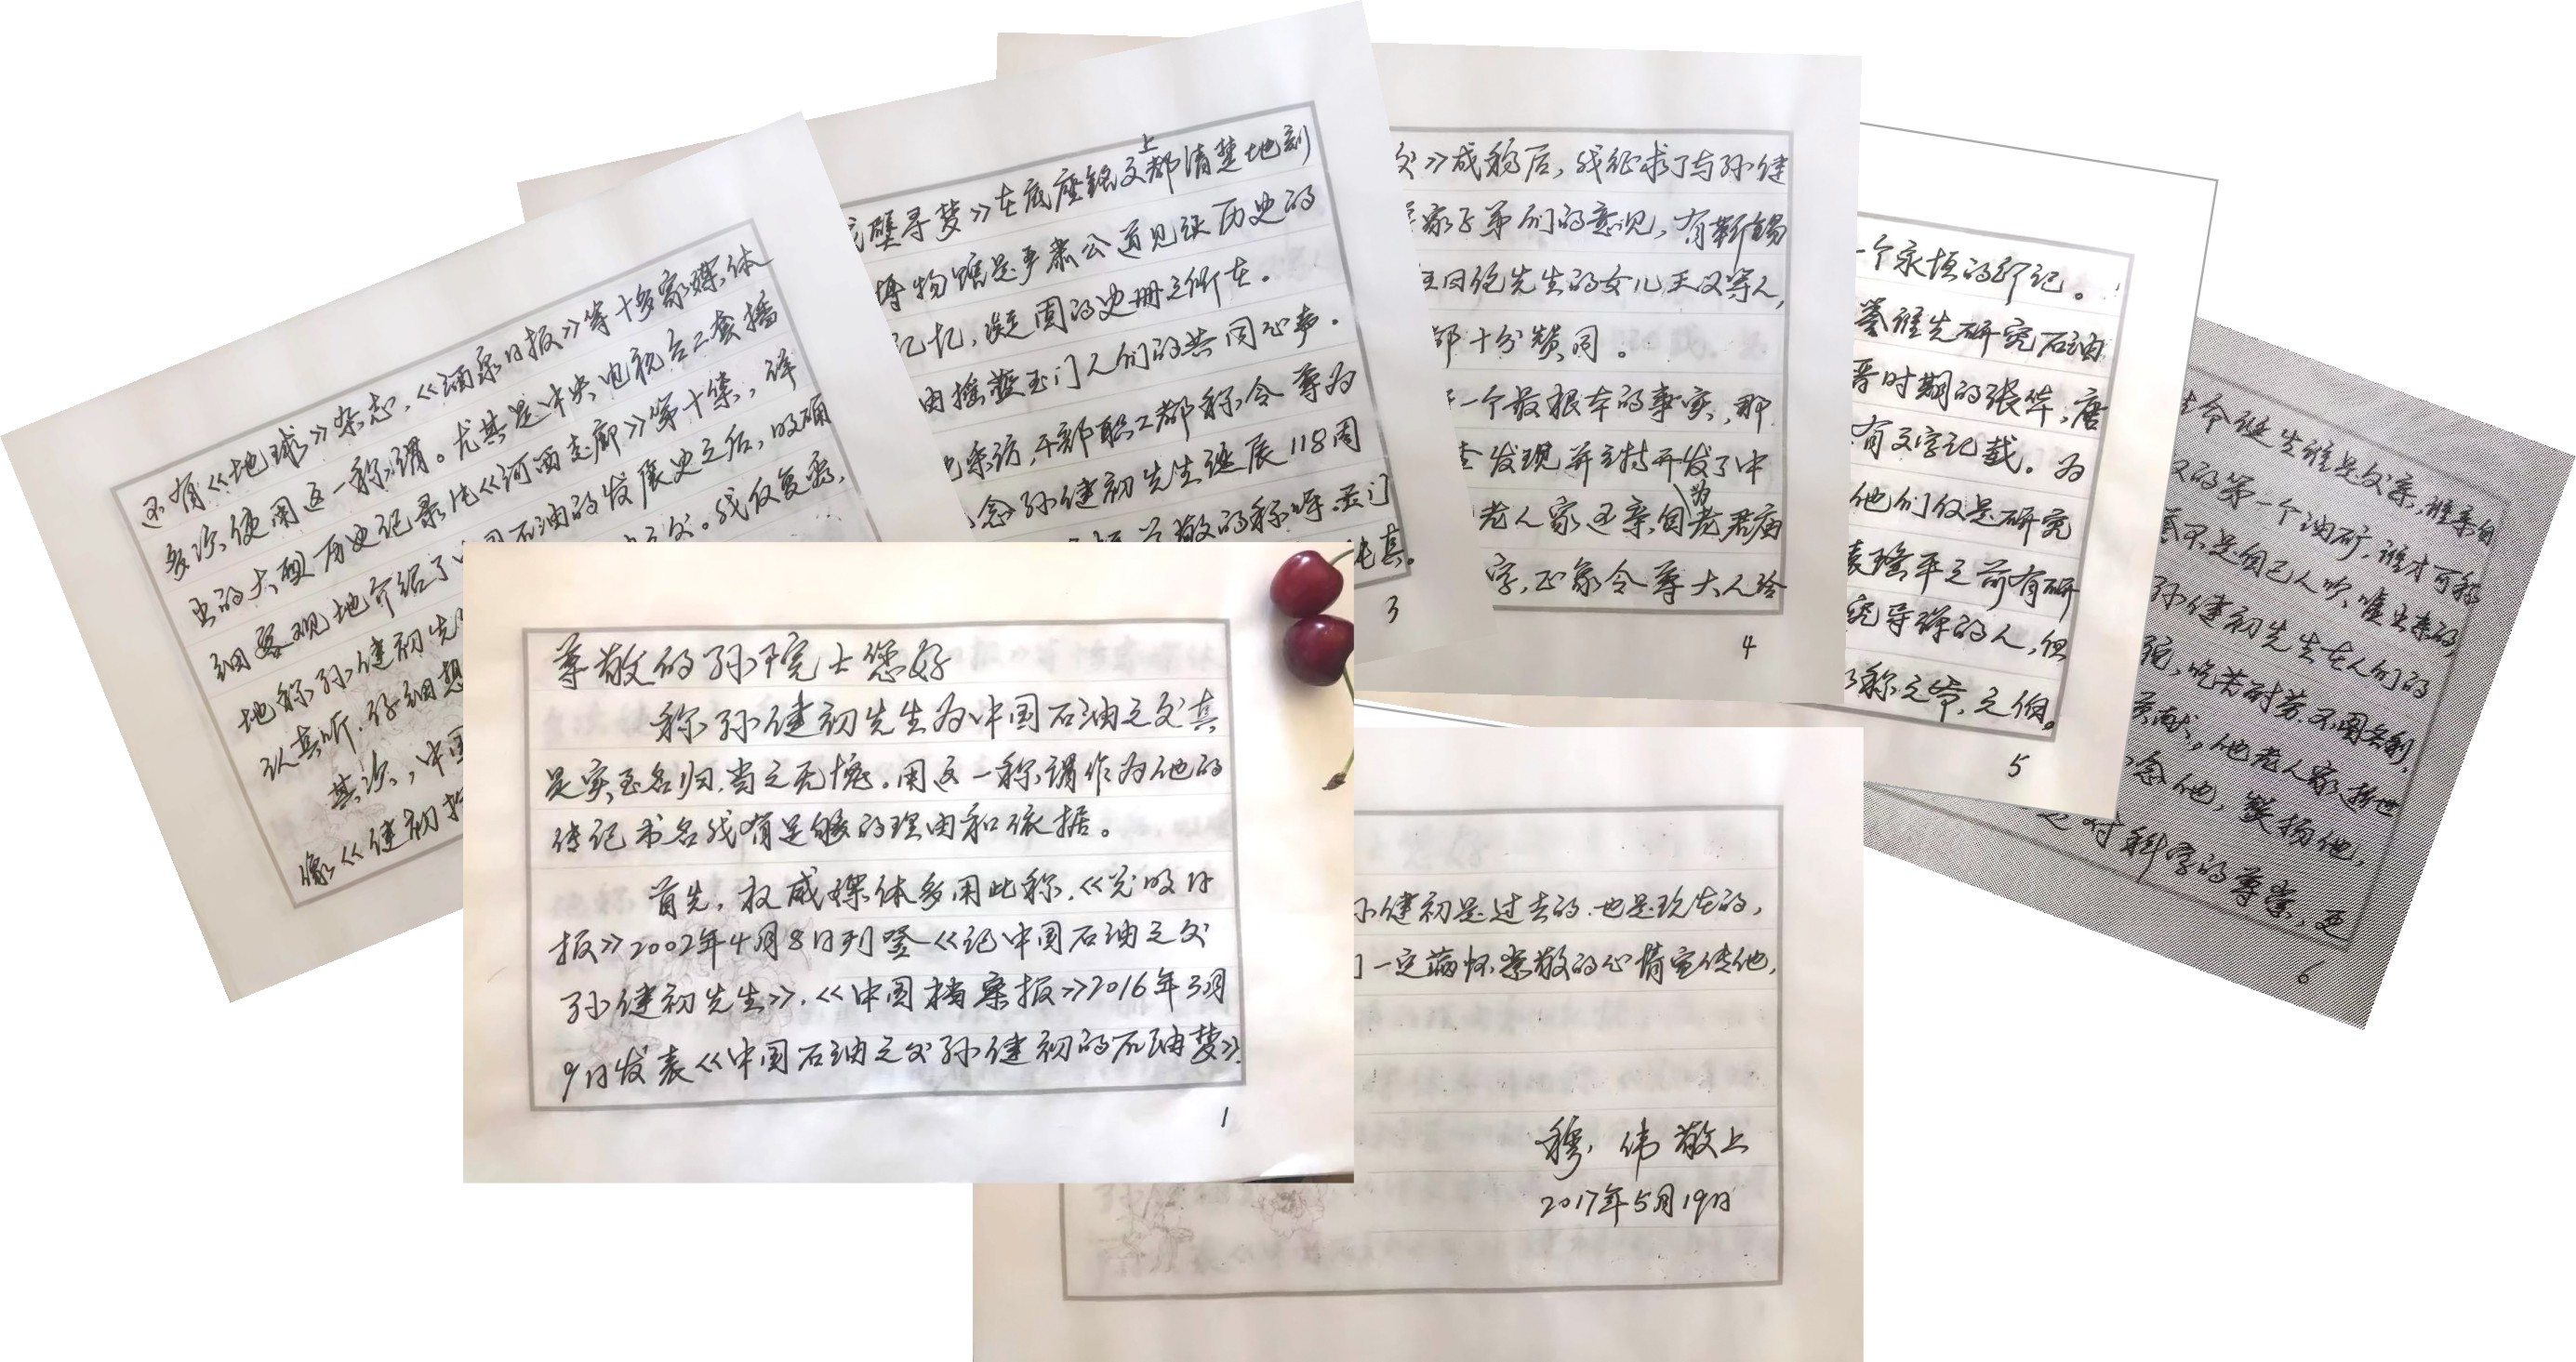 尊敬的孙院士您好
称孙健初先生为中国石油之父真
是实至名归,当之无愧。用这一称谓作为他的
传记书名我有足够的理由和依据。
首先,权威媒体多用此称,《光明日
报》2002年4月8日刊登《记中国石油之父
孙健初先生》,《中国档案报》2016年3月
9日发表《中国石油之父孙健初的石油梦》.
1
还有《地球》杂志,《酒泉日报》等十多家媒体
多次使用这一称谓。尤其是中央电视台二套播
出的大型历史记录片《河西走廊》第十集,详
细客观地介绍了中国石油的发展史之后,明确
地称孙健初先 之父。我反复看,
认真听,仔细想
其次,中国
像《健初拓
壁寻梦》在底座铭文上都清楚地刻
博物馆是严肃公道见证历史的
记忆,凝固的史册之所在。
由摇篮玉门人们的共同心声。
采访,干部职工都称令尊为
念孙健初先生诞辰118周
尊敬的称呼玉门
纯真。
3
父》成稿后,我征求了与孙健
家子弟们的意见,有靳锡
王曰伦先生的女儿王汉等人,
都十分赞同。
一个最根本的事实,那
查发现并主持开发了中
老人家还亲自为老君庙
字,正象令尊大人给
4
一个永恒的印记。
誉谁先研究石油
晋时期的张华,唐
有文字记载。为
他们仅是研究
袁隆平之前有研
究导弹的人,但
称之爷,之伯。
5
生命诞生谁是父亲,谁亲自
的第一个油矿,谁才可称
不是自己人吹嘘出来的,
孙健初先生在人们的
吃苦耐劳,不图名利,
贡献。他老人家逝世
念他,敬扬他,
是对科学的尊崇,更
6
孙健初是过去的,也是现在的,
们一定满怀崇敬的心情宣传他,
穆伟敬上
2017年5月19日